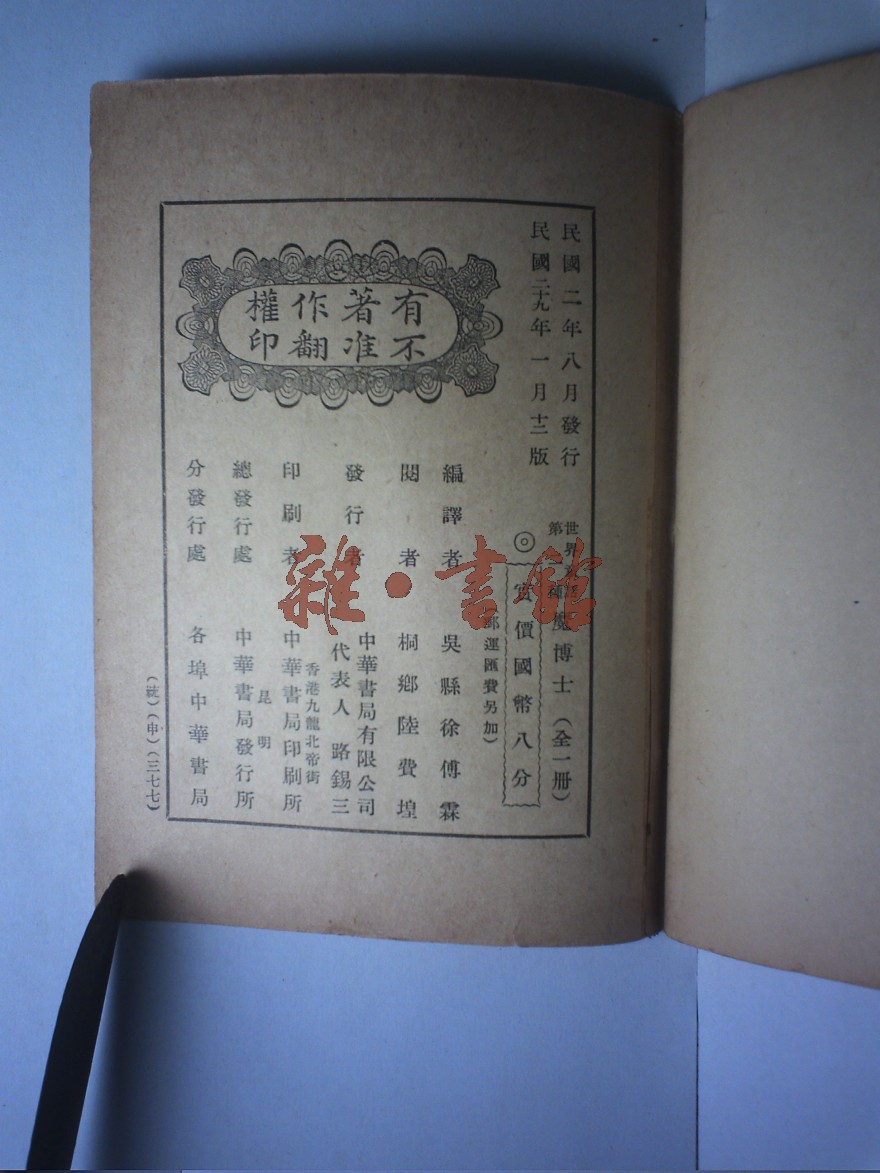 民國二年八月發行
民國二十九年一月十三版
世界童話
第 種 魔博士（全一冊）
◎實價國幣八分
郵運匯費另加）
編譯者 吳縣徐傅霖
閱者 桐鄉陸費堭
發行者 中華書局有限公司
代表人 路錫三
香港九龍北帝街
印刷者 中華書局印刷所
昆明
總發行處 中華書局發行所
分發行處 各埠中華書局
有著作權
不准翻印
（統）（申）（三七七）
雜·書館